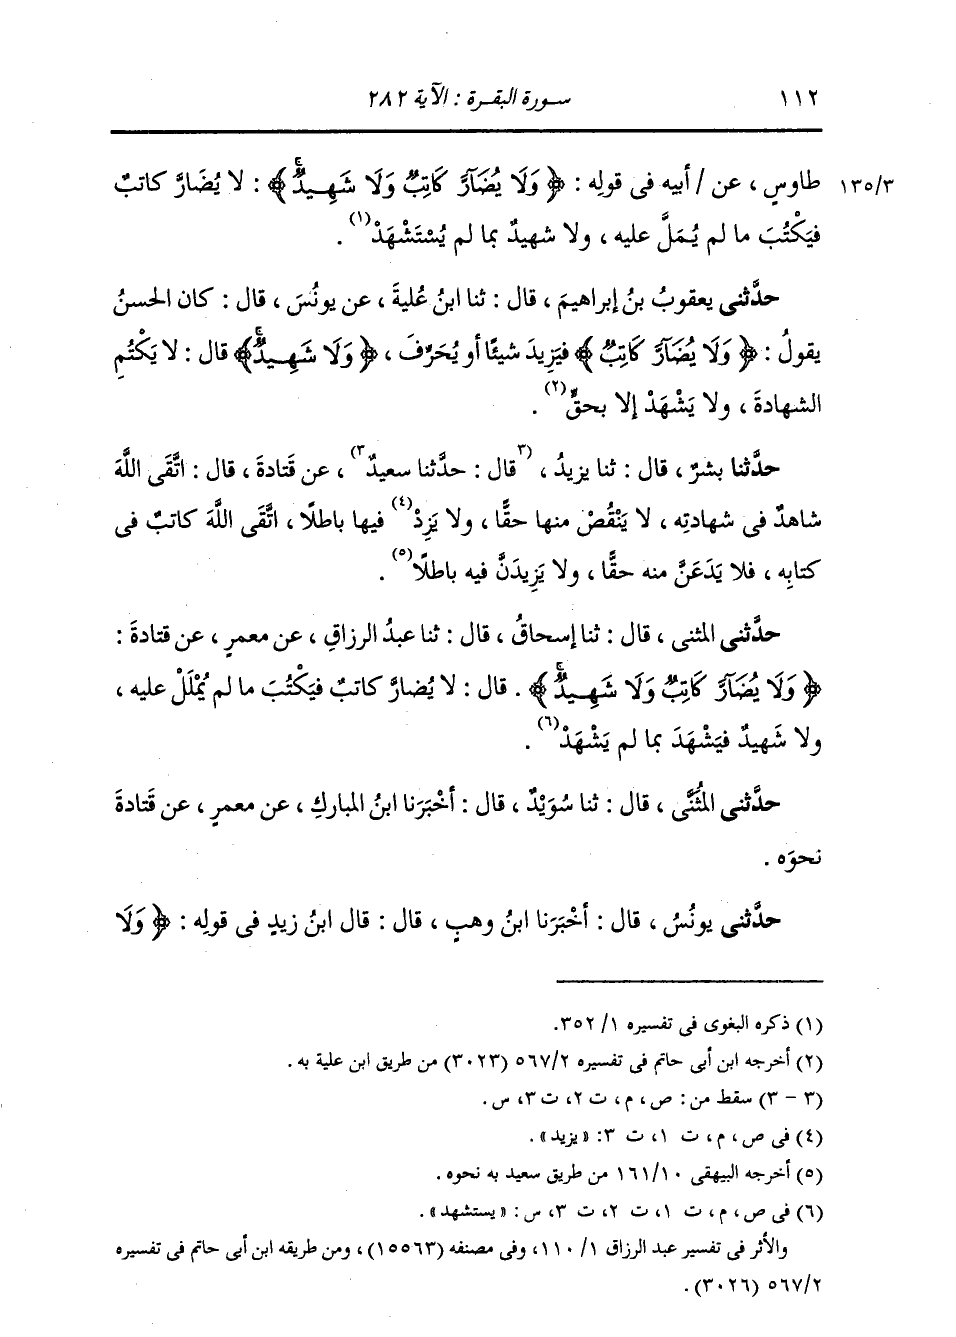 ١١٢ سورة البقرة : الآية ٢٨٢
١٣٥/٣ طاوسٍ ، عن / أبيه فى قولِه : ﴿ وَلَا يُضَآرَّ كَاتِبٌ وَلَا شَهِيدٌ ﴾ : لا يُضَارَّ كاتبٌ
فيَكْتُبَ ما لم يُمَلَّ عليه ، ولا شهيدٌ بما لم يُسْتَشْهَدْ(١) .
حدَّثنى يعقوبُ بنُ إبراهيمَ ، قال : ثنا ابنُ عُليةَ ، عن يونُسَ ، قال : كان الحسنُ
يقولُ : ﴿ وَلَا يُضَآرَّ كَاتِبٌ ﴾ فيَزِيدَ شيئًا أو يُحَرِّفَ ، ﴿ وَلَا شَهِيدٌ ﴾ قال : لا يَكْتُمِ
الشهادةَ ، ولا يَشْهَدْ إلا بحقٍّ(٢) .
حدَّثنا بشرٌ ، قال : ثنا يزيدُ ، (٣قال : حدَّثنا سعيدٌ٣) ، عن قَتادةَ ، قال : اتَّقَى اللَّهَ
شاهدٌ فى شهادتِه ، لا يَنْقُصْ منها حقًّا ، ولا يَزِدْ(٤) فيها باطلًا ، اتَّقَى اللَّهَ كاتبٌ فى
كتابِه ، فلا يَدَعَنَّ منه حقًّا ، ولا يَزِيدَنَّ فيه باطلًا(٥) .
حدَّثنى المثنى ، قال : ثنا إسحاقُ ، قال : ثنا عبدُ الرزاقِ ، عن معمرٍ ، عن قتادةَ :
﴿ وَلَا يُضَآرَّ كَاتِبٌ وَلَا شَهِيدٌ ﴾ . قال : لا يُضارَّ كاتبٌ فيَكْتُبَ ما لم يُمْلَلْ عليه ،
ولا شَهيدٌ فيَشْهَدَ بما لم يَشْهَدْ(٦) .
حدَّثنى المُثَنَّى ، قال : ثنا سُوَيْدٌ ، قال : أخْبَرَنا ابنُ المباركِ ، عن معمرٍ ، عن قَتادةَ
نحوَه .
حدَّثنى يونُسُ ، قال : أخْبَرَنا ابنُ وهبٍ ، قال : قال ابنُ زيدٍ فى قولِه : ﴿ وَلَا
(١) ذكره البغوى فى تفسيره ١/ ٣٥٢.
(٢) أخرجه ابن أبى حاتم فى تفسيره ٥٦٧/٢ (٣٠٢٣) من طريق ابن علية به .
(٣ - ٣) سقط من : ص ، م ، ت ٢، ت ٣، س .
(٤) فى ص ، م ، ت ١، ت ٣: «يزيد» .
(٥) أخرجه البيهقى ١٦١/١٠ من طريق سعيد به نحوه .
(٦) فى ص ، م ، ت ١، ت ٢، ت ٣، س : «يستشهد» .
والأثر فى تفسير عبد الرزاق ١/ ١١٠، وفى مصنفه (١٥٥٦٣) ، ومن طريقه ابن أبى حاتم فى تفسيره
٥٦٧/٢ (٣٠٢٦) .